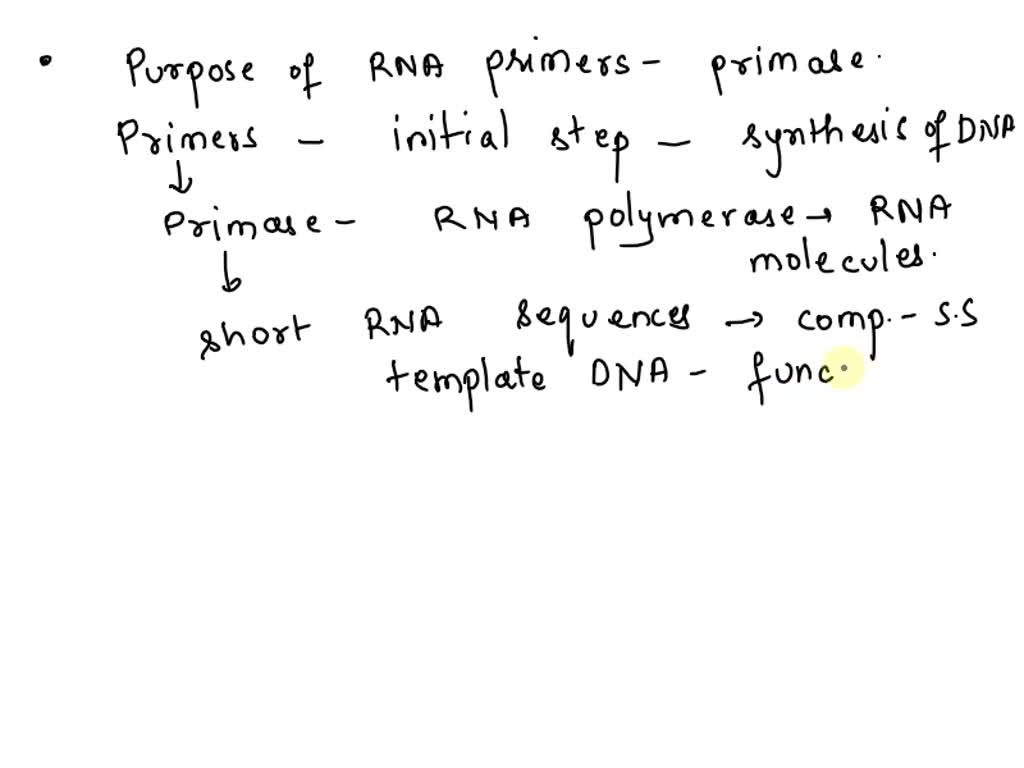 • Purpose of RNA primers - primase.
Primers - initial step - synthesis of DNA
↓
Primase - RNA polymerase → RNA
molecules.
↓
short RNA sequences → comp. - S.S
template DNA - func.